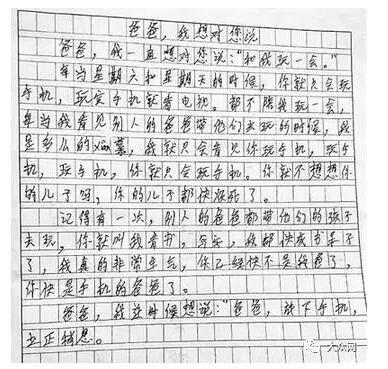 爸爸,我想对您说
爸爸,我一直想对您说:“和我玩一会。”
每当星期六和星期天的时候,你就只会玩
手机,玩完手机就看电视。都不陪我玩一会,
每当我看见别人的爸爸带他们去玩的时候,我
是多么的xian慕,我就只会看见你玩手机,玩手
机,玩手机,你就只会玩手机。你就不想想你
的儿子吗,你的儿子都快
死了。
记得有一次,别人的爸爸都带他们的孩子
去玩,你就叫我看书,写字,我都快成书呆子
了,我真的非常生气,你已经快不是我爸了,
你快是手机的爸爸了。
爸爸,我这时候想说:“爸爸,放下手机,
立正稍息。
大众网